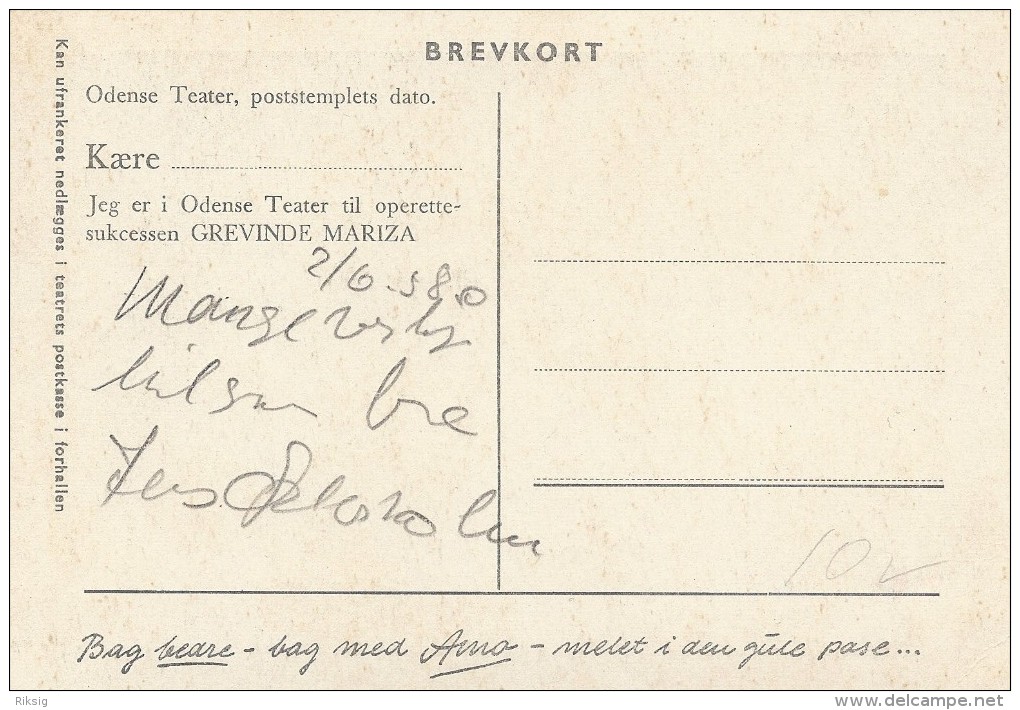 BREVKORT
Odense Teater, poststemplets dato.
Kære
Jeg er i Odense Teater til operette-
sukcessen GREVINDE MARIZA
2/6
Mange
Jens
Kan ufrankeret nedlægges i teatrets postkasse i forhallen
10
Bag bedre - bag med Amo - melet i den gule pose...
Riksig
delcampe.net